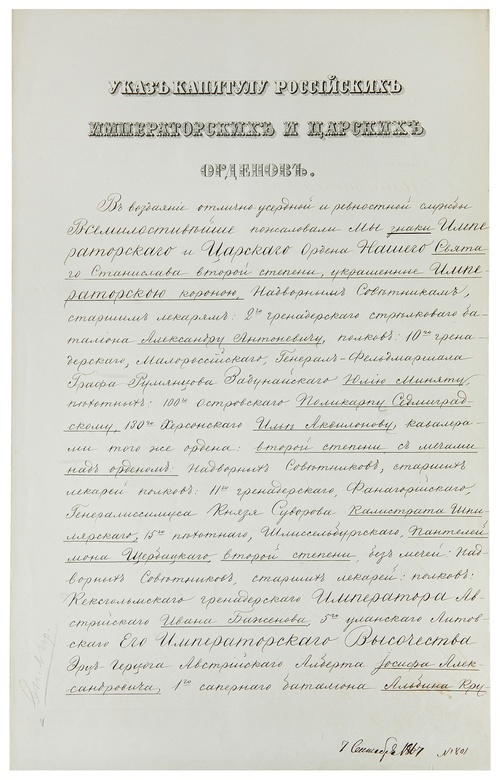 УКАЗЪ КАПИТУЛУ РОССІЙСКИХЪ
ИМПЕРАТОРСКИХЪ И ЦАРСКИХЪ
ОРДЕНОВЪ.
Въ воздаяніе отлично усердной и ревностной службы
Всемилостивѣйше пожаловали Мы знаки Импе
раторскаго и Царскаго Ордена Нашего Свята
го Станислава второй степени, украшенные Импе
раторскою короною, Надворнымъ Совѣтникамъ,
старшимъ лекарямъ: 2го гренадерскаго стрѣлковаго ба-
таліона Александру Антоневичу, полковъ: 10го грена-
дерскаго, Малороссійскаго, Генералъ-Фельдмаршала
Графа Румянцова Задунайскаго Юлію Миняту,
пѣхотныхъ: 100го Островскаго Поликарпу Седмиград-
скому, 130го Херсонскаго Аквилонову, кавалера-
ми того же ордена: второй степени, съ мечами
надъ орденомъ: Надворныхъ Совѣтниковъ, старшихъ
лекарей полковъ: 11го гренадерскаго, Фанагорійскаго,
Генералиссимуса Князя Суворова Калистрата Шпи
лярскаго, 15го пѣхотнаго, Шлиссельбургскаго, Пантелей
мона Щербацкаго, второй степени, безъ мечей: Над-
ворныхъ Совѣтниковъ, старшихъ лекарей: полковъ:
Кексгольмскаго гренадерскаго Императора Ав-
стрійскаго Ивана Баженова, 5го уланскаго Литов-
скаго Его Императорскаго Высочества
Эрцъ-Герцога Австрійскаго Альберта Іосифа Алек-
сандровича, 1го сапернаго баталіона Альбина Кру
7 Сентября 1867 № 801